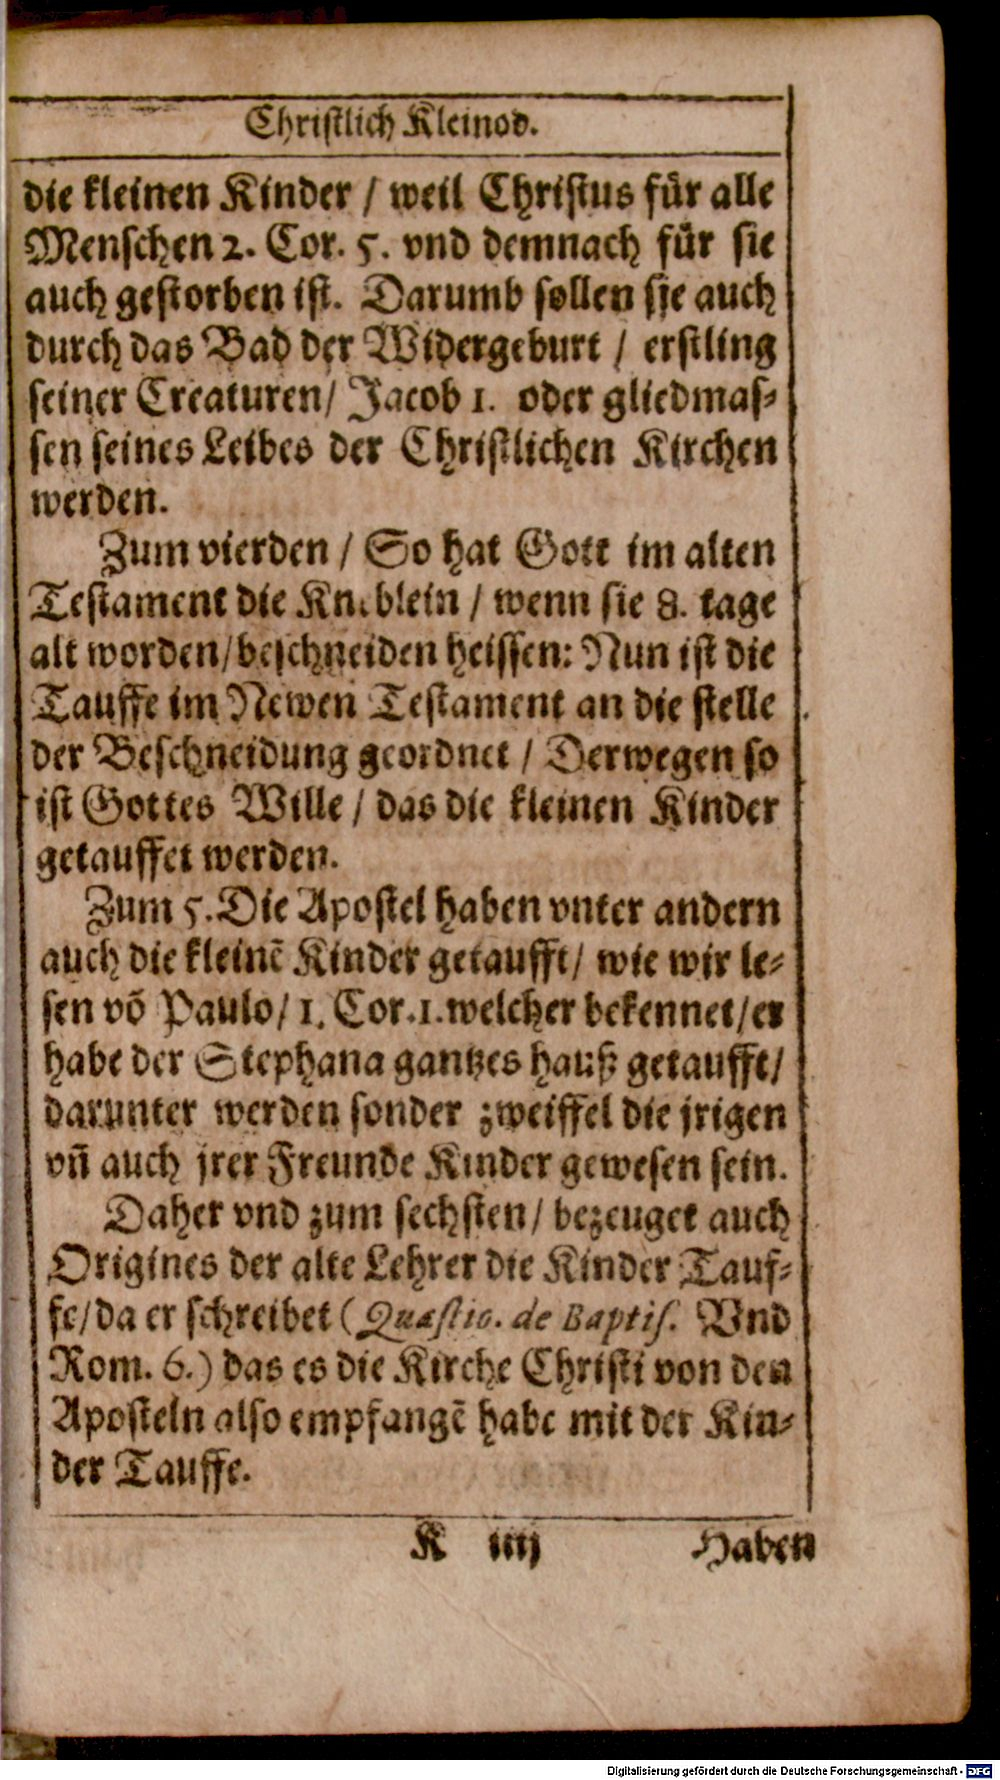 Christlich Kleinod.
die kleinen Kinder / weil Christus für alle
Menschen 2. Cor. 5. vnd demnach für sie
auch gestorben ist. Darumb sollen sie auch
durch das Bad der Widergeburt / erstling
seiner Creaturen/ Jacob 1. oder gliedmas-
sen seines Leibes der Christlichen Kirchen
werden.
Zum vierden / So hat Gott im alten
Testament die Kneblein / wenn sie 8. tage
alt worden/beschneiden heissen: Nun ist die
Tauffe im Newen Testament an die stelle
der Beschneidung geordnet / Derwegen so
ist Gottes Wille / das die kleinen Kinder
getauffet werden.
Zum 5. Die Apostel haben vnter andern
auch die kleinē Kinder getaufft/ wie wir le-
sen vō Paulo/ 1. Cor. 1. welcher bekennet/er
habe der Stephana gantzes hauß getaufft/
darunter werden sonder zweiffel die jrigen
vn̄ auch jrer Freunde Kinder gewesen sein.
Daher vnd zum sechsten/ bezeuget auch
Origines der alte Lehrer die Kinder Tauf-
fe/da er schreibet (Quæstio. de Baptis. Vnd
Rom. 6.) das es die Kirche Christi von den
Aposteln also empfangē habe mit der Kin-
der Tauffe.
K iiij Haben
Digitalisierung gefördert durch die Deutsche Forschungsgemeinschaft - DFG